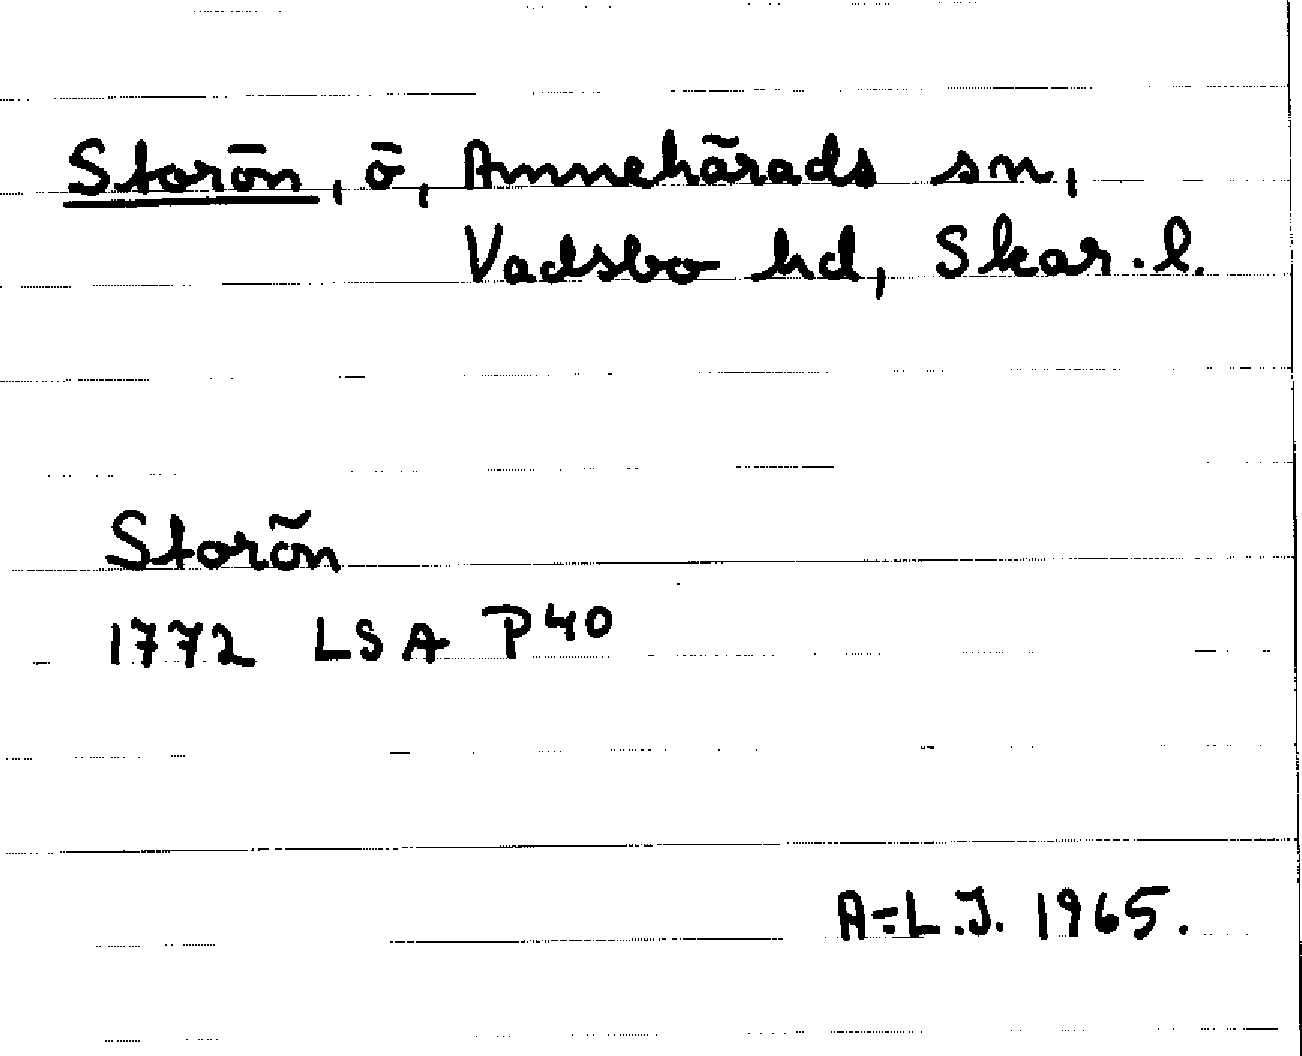 Storön, ö, Amnehärads sn,
Vadsbo hd, Skar. l.
Storön
1772 LSA P40
A-L.J. 1965.